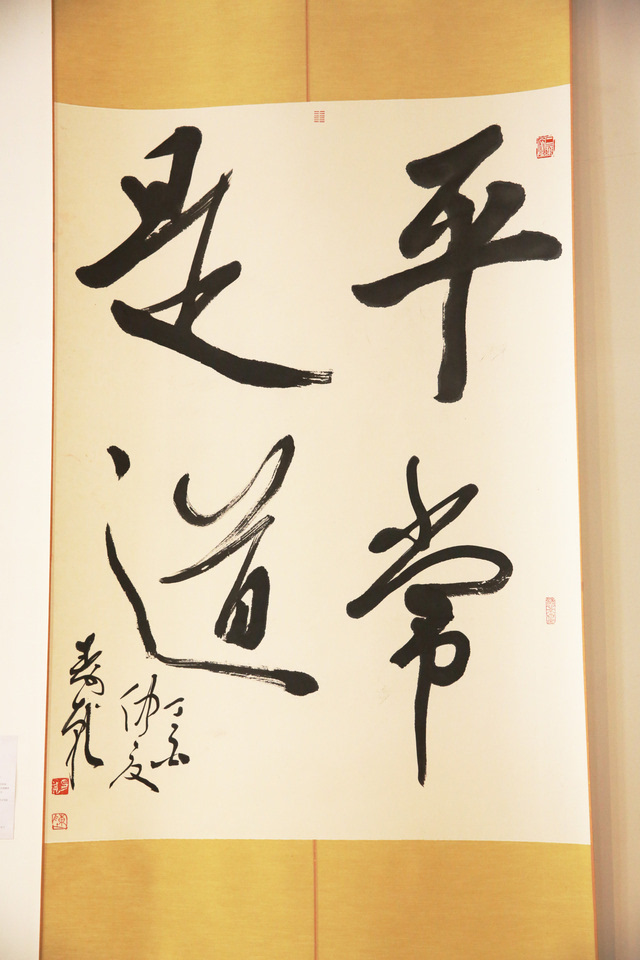 平常
是道
丁酉
仲夏